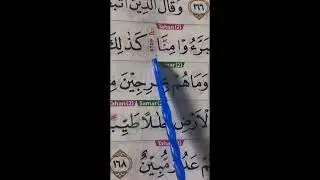 ١٦٦ وَقَالَ الَّذِيْنَ اتَّبَ
Tahan(2)
بَرَّءُوْا مِنَّا كَذٰلِكَ
mar(2)
وَمَا هُمْ بِخٰرِجِيْنَ مِ
Tahan(2) Samar(2)
الْاَرْضِ حَلٰلًا طَيِّبً
Tahan(2)
مْ عَدُوٌّ مُّبِيْنٌ ١٦٨